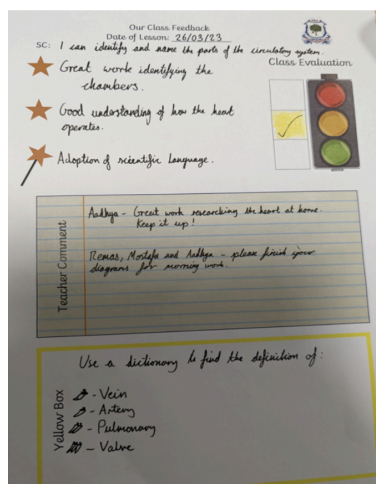 Our Class Feedback
Date of Lesson: 26/03/23
SC: I can identify and name the parts of the circulatory system.
Class Evaluation
Great work identifying the
chambers.
Good understanding of how the heart
operates.
Adoption of scientific language.
Teacher Comment
Aadhya - Great work researching the heart at home.
Keep it up!
Remas, Mostafa and Aadhya - please finish your
diagrams for morning work.
Yellow Box
Use a dictionary to find the definition of:
- Vein
- Artery
- Pulmonary
- Valve